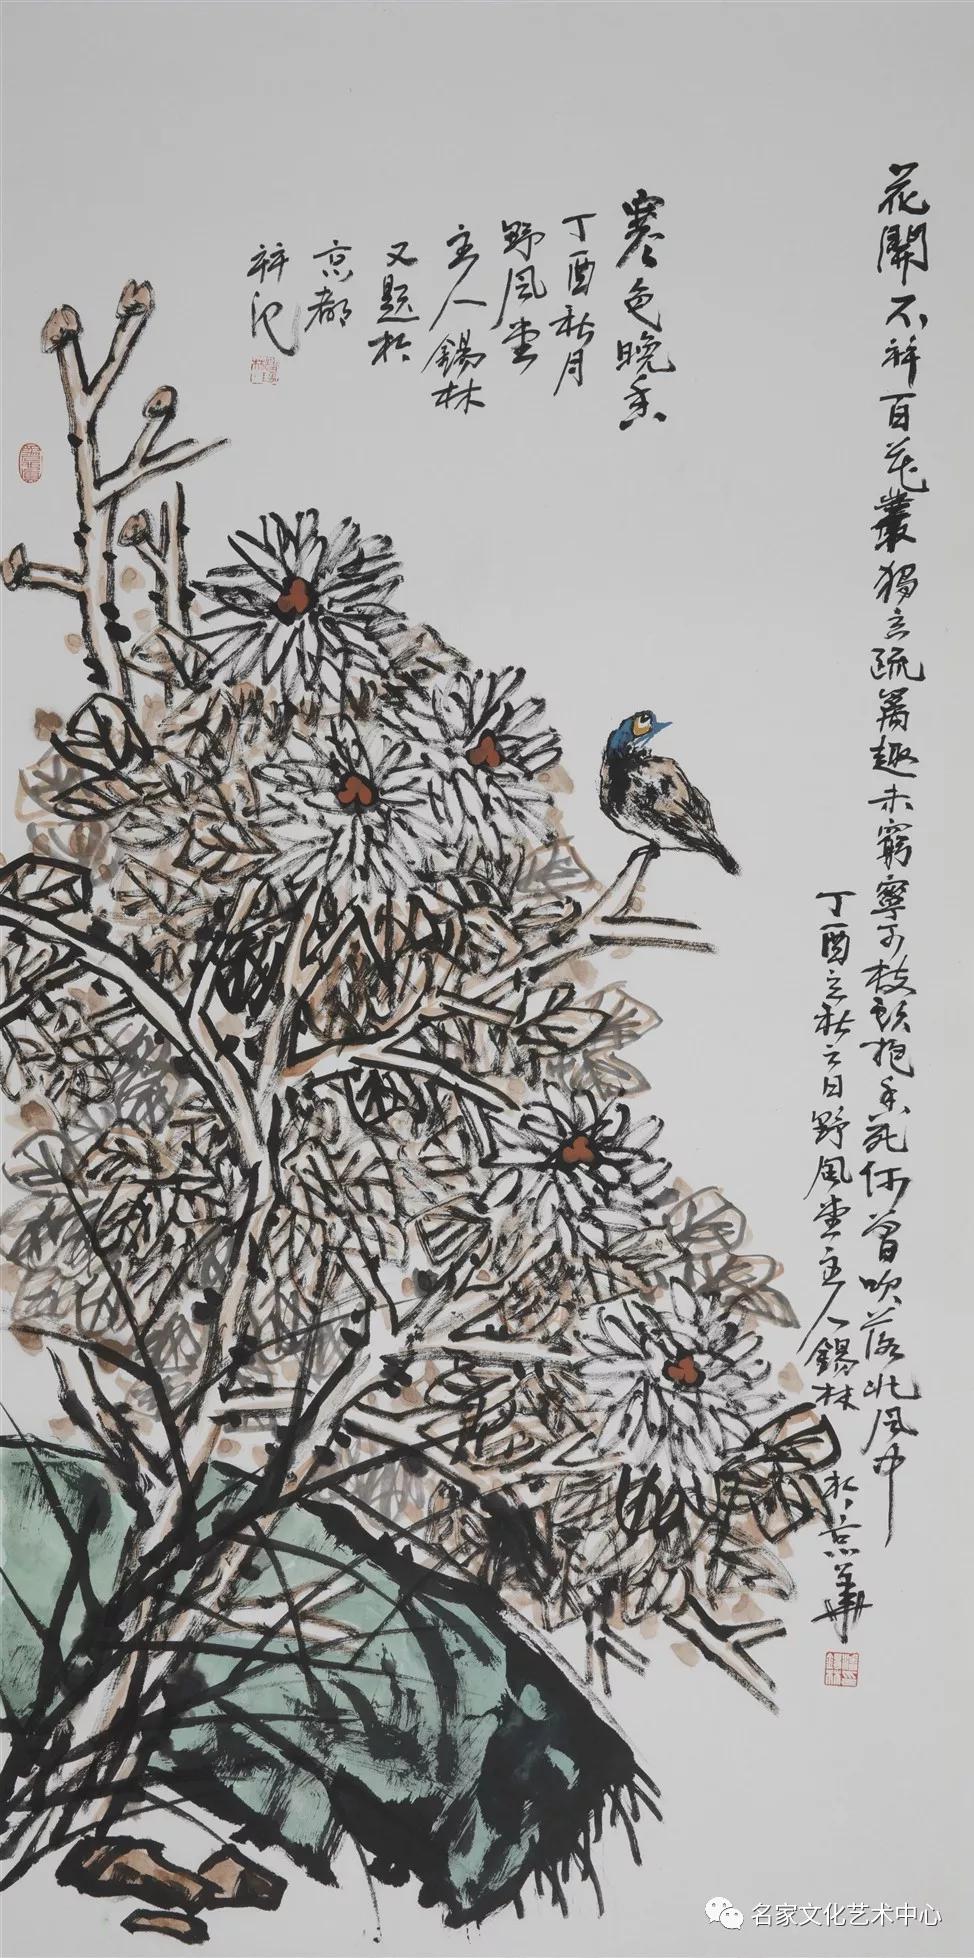 花開不并百花叢獨立疏篱趣未窮寧可枝頭抱香死何曾吹落北風中
丁酉立秋之日野風堂主人錫林於京華
寒色晚香
丁酉秋月
野風堂
主人錫林
又題於
京都
并记
名家文化艺术中心